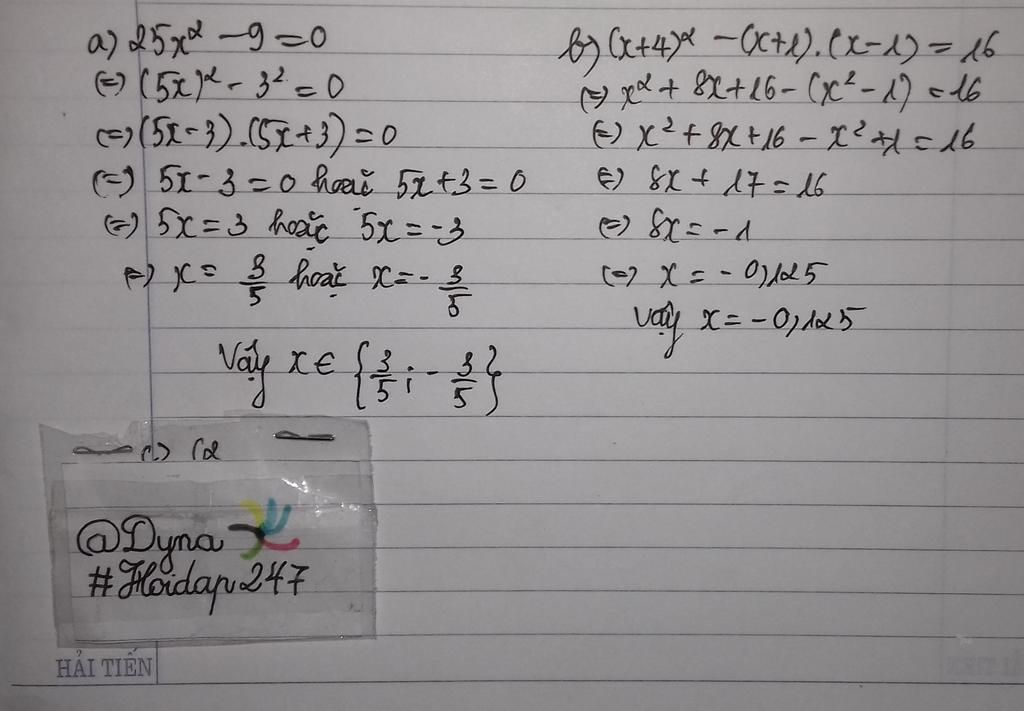 a) 25x² - 9 = 0
(=) (5x)² - 3² = 0
(=) (5x - 3).(5x + 3) = 0
(=) 5x - 3 = 0 hoặc 5x + 3 = 0
(=) 5x = 3 hoặc 5x = -3
(=) x = 3/5 hoặc x = - 3/5
Vậy x ∈ {3/5 ; - 3/5}
b) (x+4)² - (x+1).(x-1) = 16
(=) x² + 8x + 16 - (x² - 1) = 16
(=) x² + 8x + 16 - x² + 1 = 16
(=) 8x + 17 = 16
(=) 8x = -1
(=) x = -0,125
Vậy x = -0,125
@Dyna
#Hoidap247
HẢI TIẾN